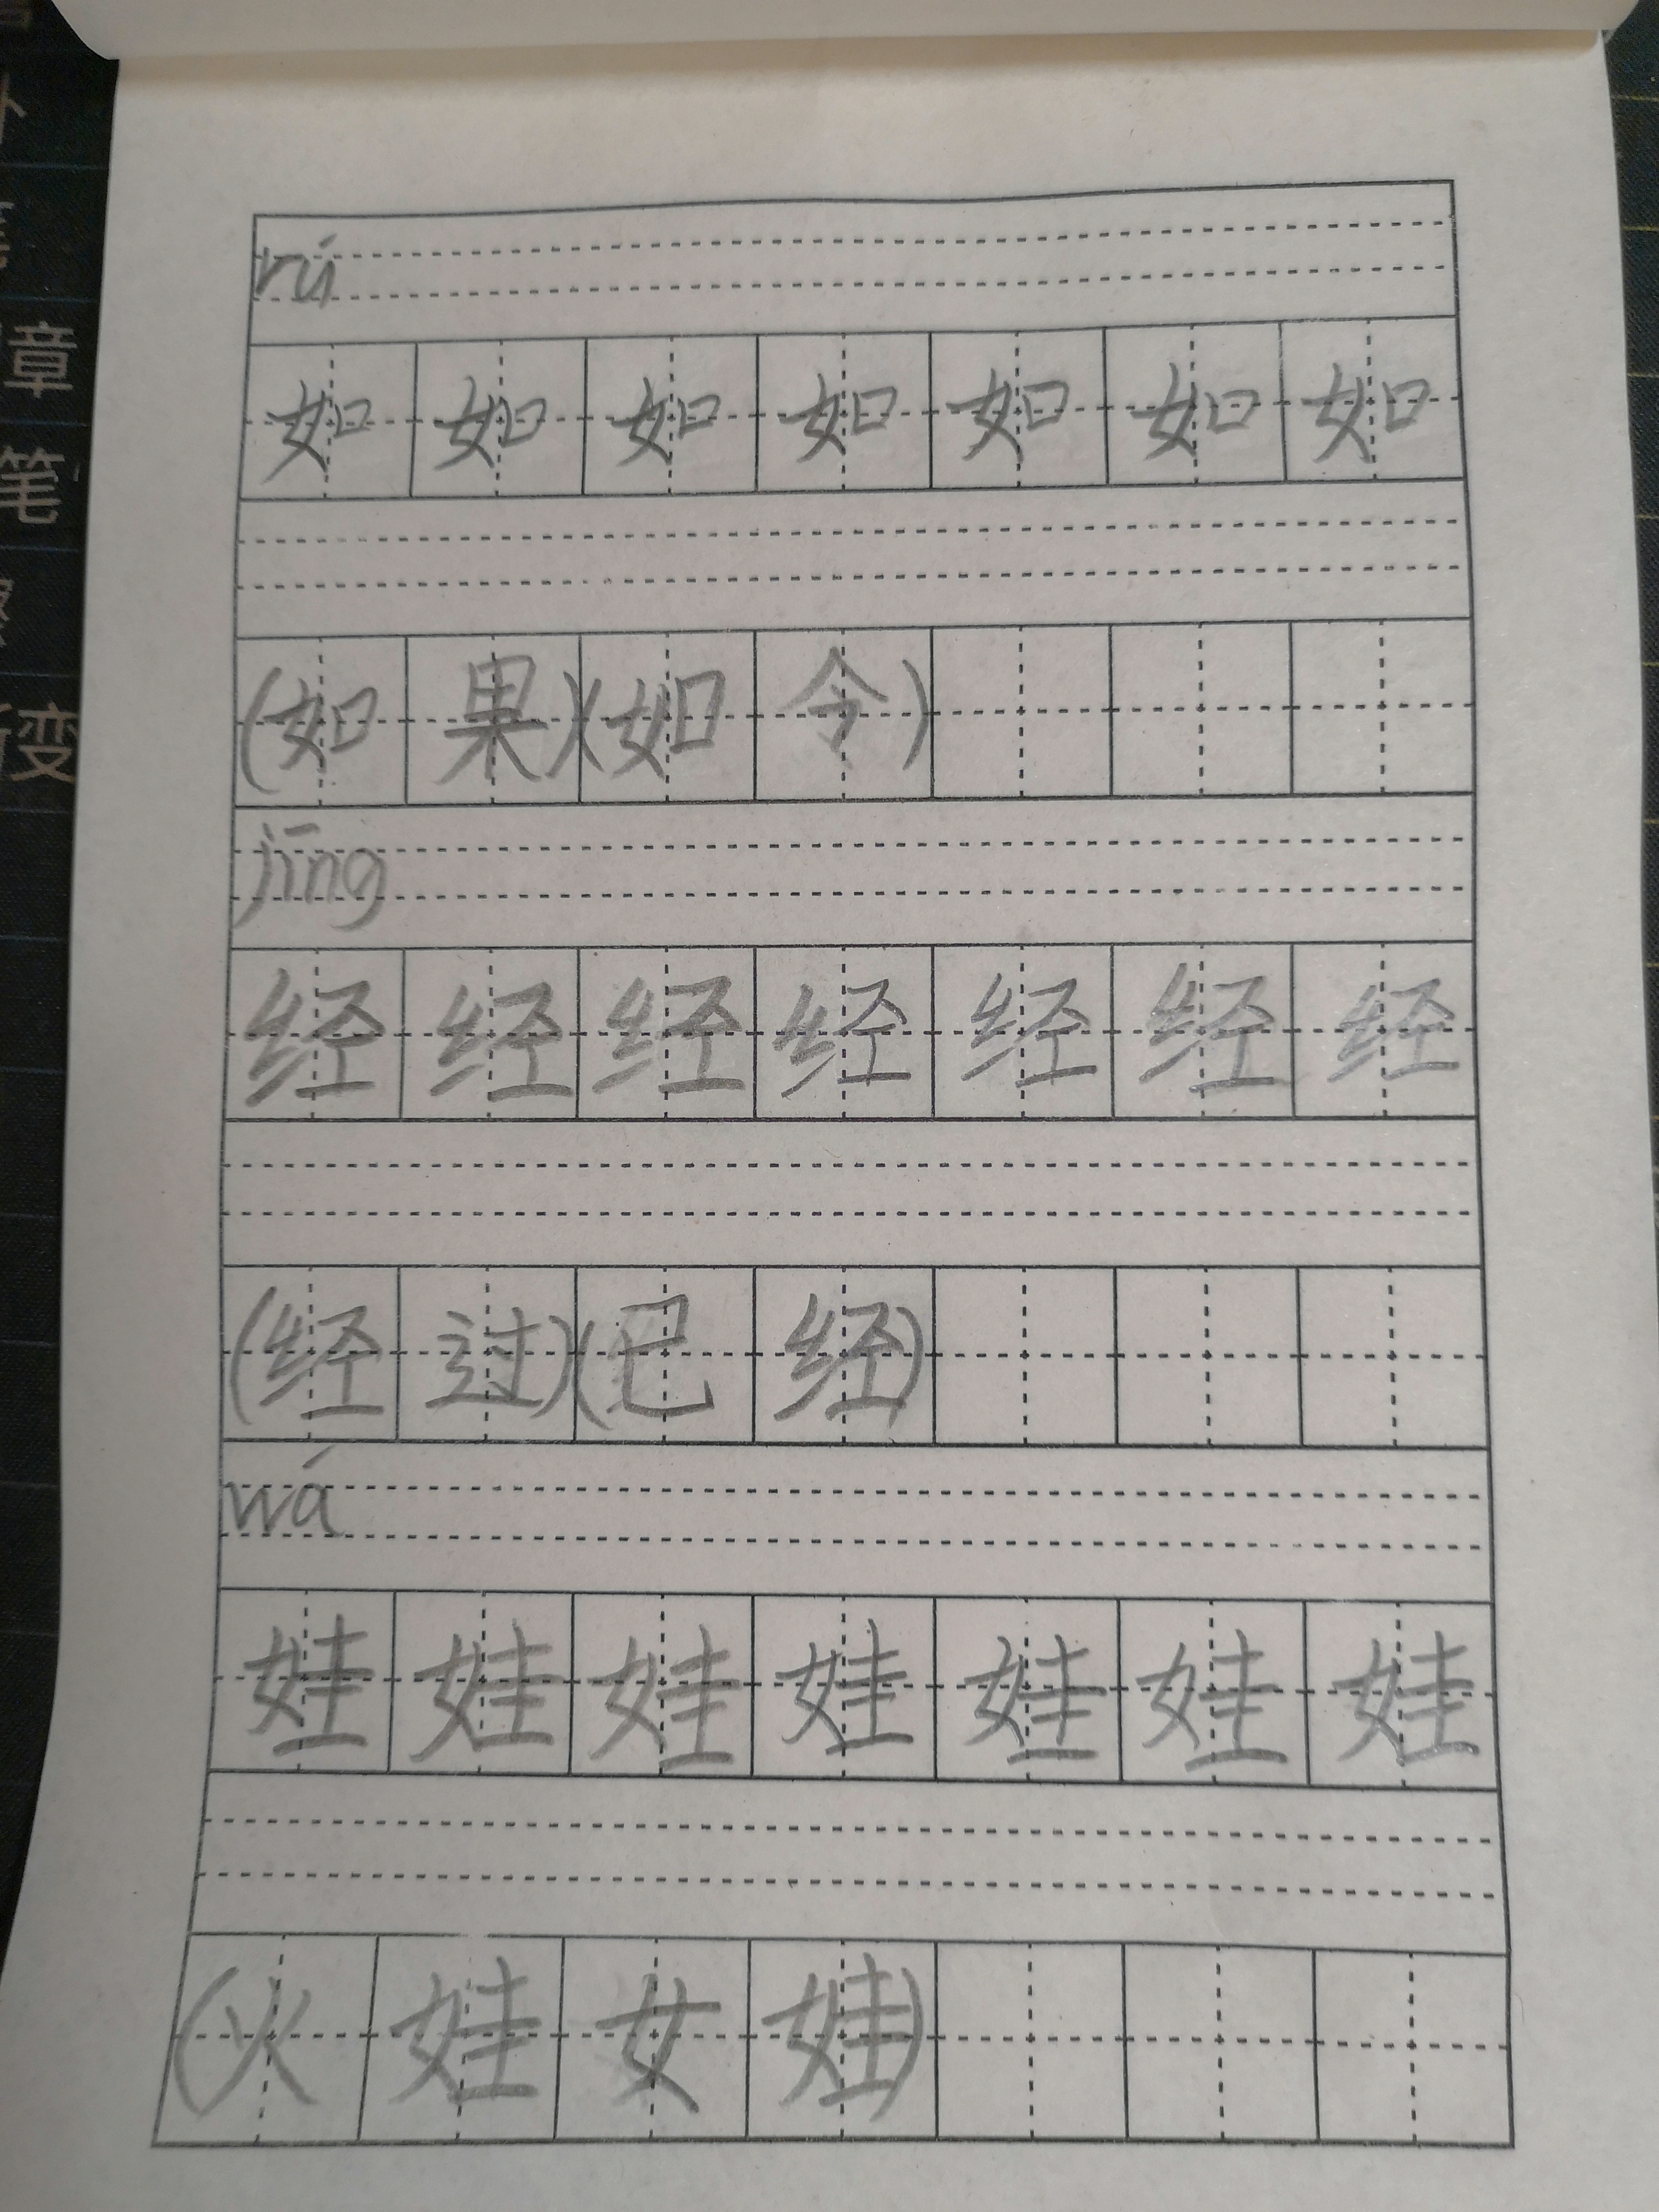 rú
如如如如如如如
(如果)(如令)
jīng
经经经经经经经
(经过)(已经)
wá
娃娃娃娃娃娃娃
(火娃女娃)
章
笔
变